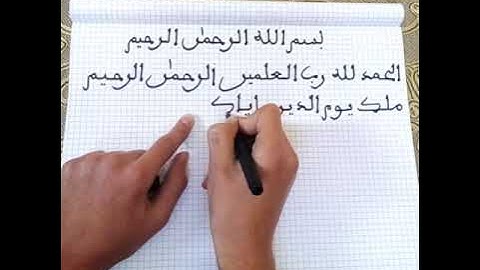 بسم الله الرحمٰن الرحيم
الحمد لله رب العٰلمين الرحمٰن الرحيم
ملك يوم الدين إياك